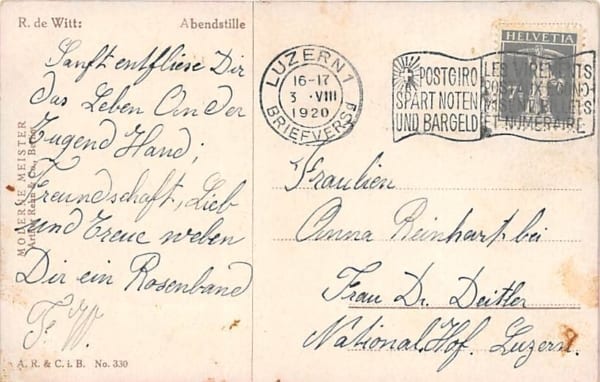 R. de Witt: Abendstille
Sanft entfliese Dir
das Leben An der
Tugend Hand;
Freundschaft, Lieb
und Treue weben
Dir ein Rosenband
F. W.
MODERNE MEISTER
A. R. & C. i. B. No. 330
LUZERN 1
16-17
3. VIII
1920
BRIEFVERSd
POSTGIRO
SPART NOTEN
UND BARGELD
LES VIREMENTS
POSTAUX
ET NUMÉRAIRE
HELVETIA
Fraulien
Anna Reinhart bei
Frau Dr. Deitler
National Hof. Luzern.